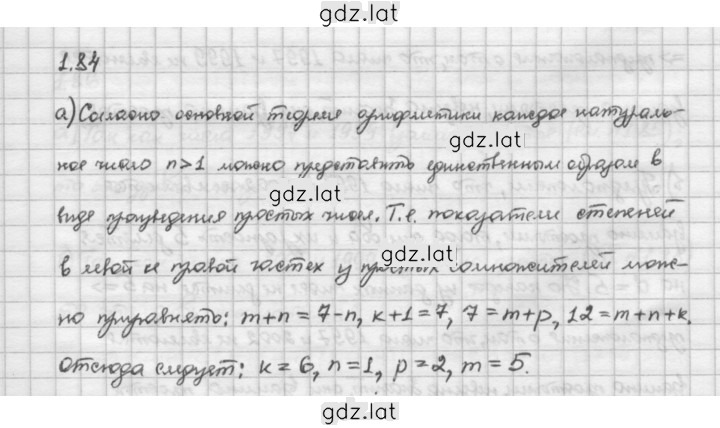 gdz.lat
1.84
а) Согласно основной теореме арифметики каждое натураль-
gdz.lat
ное число n>1 можно представить единственным образом в
gdz.lat
виде произведения простых чисел. Т.е. показатели степеней
gdz.lat
в левой и правой частях у простых сомножителей мож-
но приравнять: m+n=7-n, k+1=7, 7=m+p, 12=m+n+k.
gdz.lat
Отсюда следует: k=6, n=1, p=2, m=5.
gdz.lat